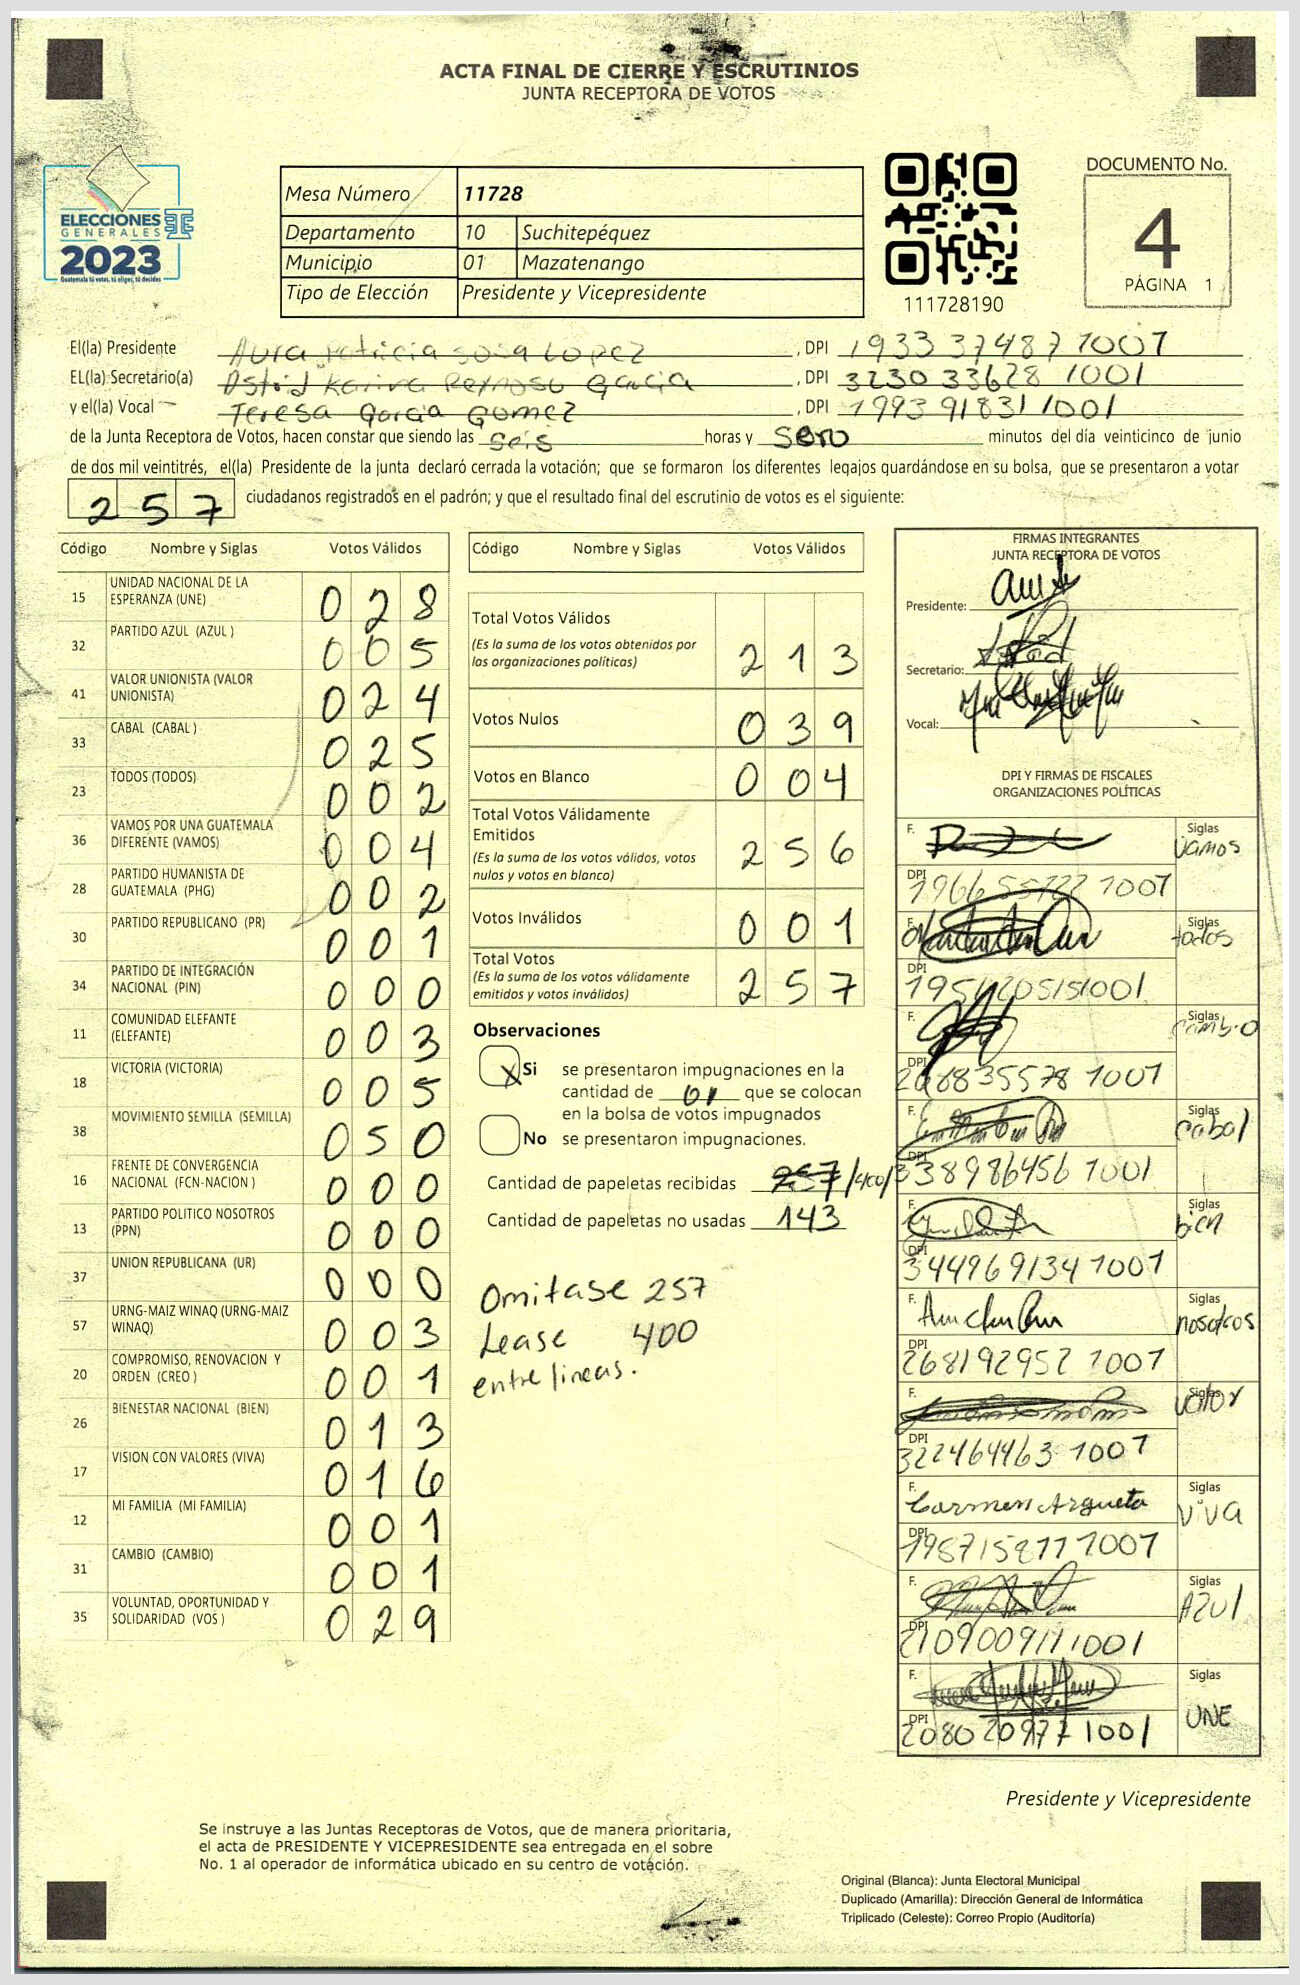 ACTA FINAL DE CIERRE Y ESCRUTINIOS
JUNTA RECEPTORA DE VOTOS
ELECCIONES
GENERALES
2023
Guatemala tú votas, tú eliges, tú decides
Mesa Número 11728
Departamento 10 Suchitepéquez
Municipio 01 Mazatenango
Tipo de Elección Presidente y Vicepresidente
111728190
DOCUMENTO No.
4
PÁGINA 1
El(la) Presidente Aura Patricia Sosa Lopez, DPI 1933 37487 1001
EL(la) Secretario(a) Astrid Karina Reynoso Garcia, DPI 3230 33628 1001
y el(la) Vocal Teresa Garcia Gomez, DPI 1993 91831 1001
de la Junta Receptora de Votos, hacen constar que siendo las seis horas y sero minutos del día veinticinco de junio
de dos mil veintitrés, el(la) Presidente de la junta declaró cerrada la votación; que se formaron los diferentes legajos guardándose en su bolsa, que se presentaron a votar
257 ciudadanos registrados en el padrón; y que el resultado final del escrutinio de votos es el siguiente:
Código Nombre y Siglas Votos Válidos
15 UNIDAD NACIONAL DE LA ESPERANZA (UNE) 028
32 PARTIDO AZUL (AZUL ) 005
41 VALOR UNIONISTA (VALOR UNIONISTA) 024
33 CABAL (CABAL ) 025
23 TODOS (TODOS) 002
36 VAMOS POR UNA GUATEMALA DIFERENTE (VAMOS) 004
28 PARTIDO HUMANISTA DE GUATEMALA (PHG) 002
30 PARTIDO REPUBLICANO (PR) 001
34 PARTIDO DE INTEGRACIÓN NACIONAL (PIN) 000
11 COMUNIDAD ELEFANTE (ELEFANTE) 003
18 VICTORIA (VICTORIA) 005
38 MOVIMIENTO SEMILLA (SEMILLA) 050
16 FRENTE DE CONVERGENCIA NACIONAL (FCN-NACION ) 000
13 PARTIDO POLITICO NOSOTROS (PPN) 000
37 UNION REPUBLICANA (UR) 000
57 URNG-MAIZ WINAQ (URNG-MAIZ WINAQ) 003
20 COMPROMISO, RENOVACION Y ORDEN (CREO ) 001
26 BIENESTAR NACIONAL (BIEN) 013
17 VISION CON VALORES (VIVA) 016
12 MI FAMILIA (MI FAMILIA) 001
31 CAMBIO (CAMBIO) 001
35 VOLUNTAD, OPORTUNIDAD Y SOLIDARIDAD (VOS ) 029
Código Nombre y Siglas Votos Válidos
Total Votos Válidos 213
(Es la suma de los votos obtenidos por
las organizaciones políticas)
Votos Nulos 039
Votos en Blanco 004
Total Votos Válidamente
Emitidos 256
(Es la suma de los votos válidos, votos
nulos y votos en blanco)
Votos Inválidos 001
Total Votos 257
(Es la suma de los votos válidamente
emitidos y votos inválidos)
Observaciones
X Si se presentaron impugnaciones en la
cantidad de 01 que se colocan
en la bolsa de votos impugnados
No se presentaron impugnaciones.
Cantidad de papeletas recibidas 257 /400/
Cantidad de papeletas no usadas 143
Omitase 257
Lease 400
entre lineas.
FIRMAS INTEGRANTES
JUNTA RECEPTORA DE VOTOS
Presidente:
Secretario:
Vocal:
DPI Y FIRMAS DE FISCALES
ORGANIZACIONES POLÍTICAS
F. Siglas
vamos
DPI
F. Siglas
todos
DPI
F. Siglas
cambio
DPI 268835578 1001
F. Siglas
cabal
DPI 338986456 1001
F. Siglas
bien
DPI 344969134 1001
F. Siglas
nosotros
DPI 268192952 1001
F. Siglas
valor
DPI 322464463 1001
F. Carmen Argueta Siglas
viva
DPI 198715877 1001
F. Siglas
AZUl
DPI 210900911 1001
F. Siglas
UNE
DPI 2080 20977 1001
Presidente y Vicepresidente
Se instruye a las Juntas Receptoras de Votos, que de manera prioritaria,
el acta de PRESIDENTE Y VICEPRESIDENTE sea entregada en el sobre
No. 1 al operador de informática ubicado en su centro de votación.
Original (Blanca): Junta Electoral Municipal
Duplicado (Amarilla): Dirección General de Informática
Triplicado (Celeste): Correo Propio (Auditoría)